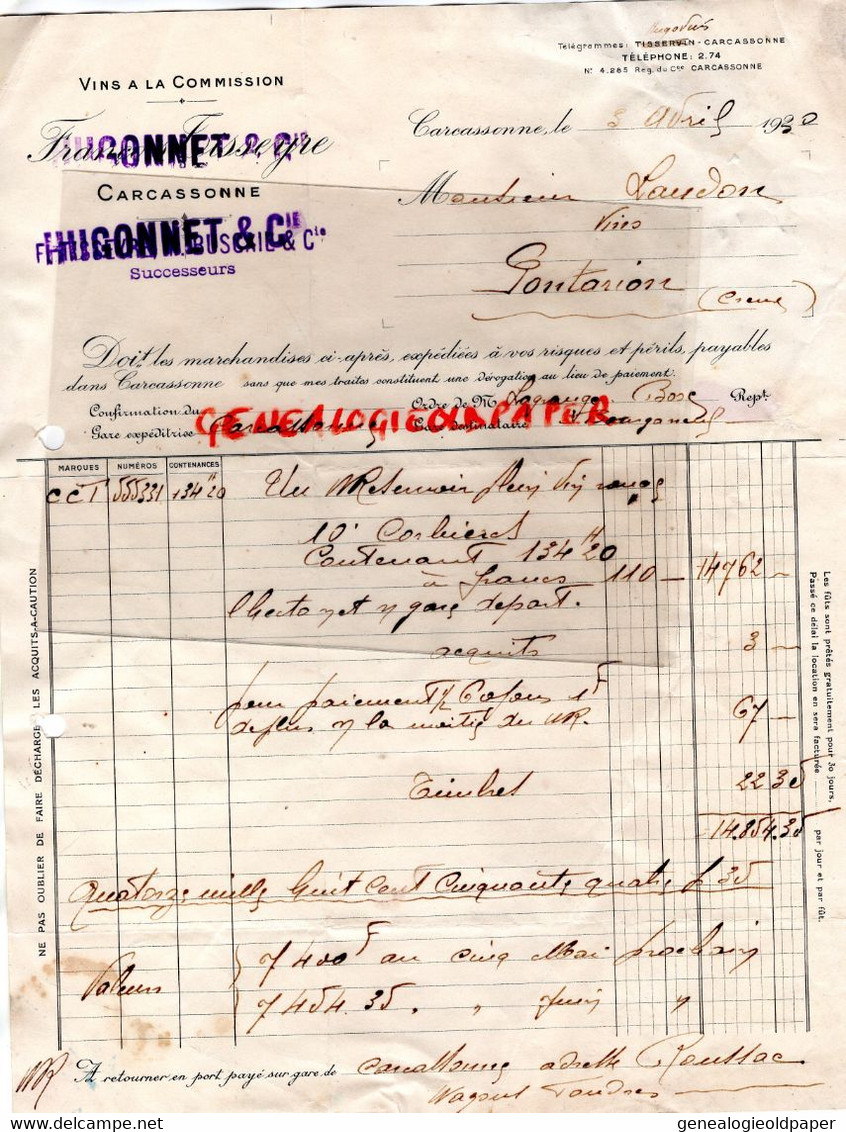 Hugovins
Télégrammes: TISSERVIN-CARCASSONNE
TÉLÉPHONE: 2.74
N° 4.285 Rég. du Cce CARCASSONNE
VINS A LA COMMISSION
Carcassonne, le 3 Avril 1930
François Tisseyre
HUGONNET & Cie
CARCASSONNE
HUGONNET & CIE
F. TISSEYRE, BUSCAIL & Cie
Successeurs
Monsieur Laudon
Vins
Pontarion
(Creuse)
Doit les marchandises ci-après, expédiées à vos risques et périls, payables
dans Carcassonne sans que mes traites constituent une dérogation au lieu de paiement.
Confirmation du
Ordre de M Lagrange Bosc Rept.
Gare expéditrice Carcassonne
Gare destinataire Bourganeuf
GENEALOGIEOLDPAPER
MARQUES NUMÉROS CONTENANCES
CCT 555331 134H20
Un WRéservoir plein vin rouge
10° Corbières
Contenant 134H20
à francs 110 — 14762 —
l'hecto net n gare départ.
acquits 3 —
pour paiement 1F
de plus n la moitié du WR. 67 —
Timbres 22 35
14.854.35
Quatorze mille huit cent cinquante quatre f 35
Valeurs
7400F au cinq Mai prochain
7454.35 " Juin "
WR
A retourner en port payé sur gare de Carcassonne adresse Roussac
Wagons Foudres
NE PAS OUBLIER DE FAIRE DÉCHARGER LES ACQUITS-A-CAUTION
Les fûts sont prêtés gratuitement pour 30 jours,
Passé ce délai la location en sera facturée par jour et par fût.
genealogieoldpaper